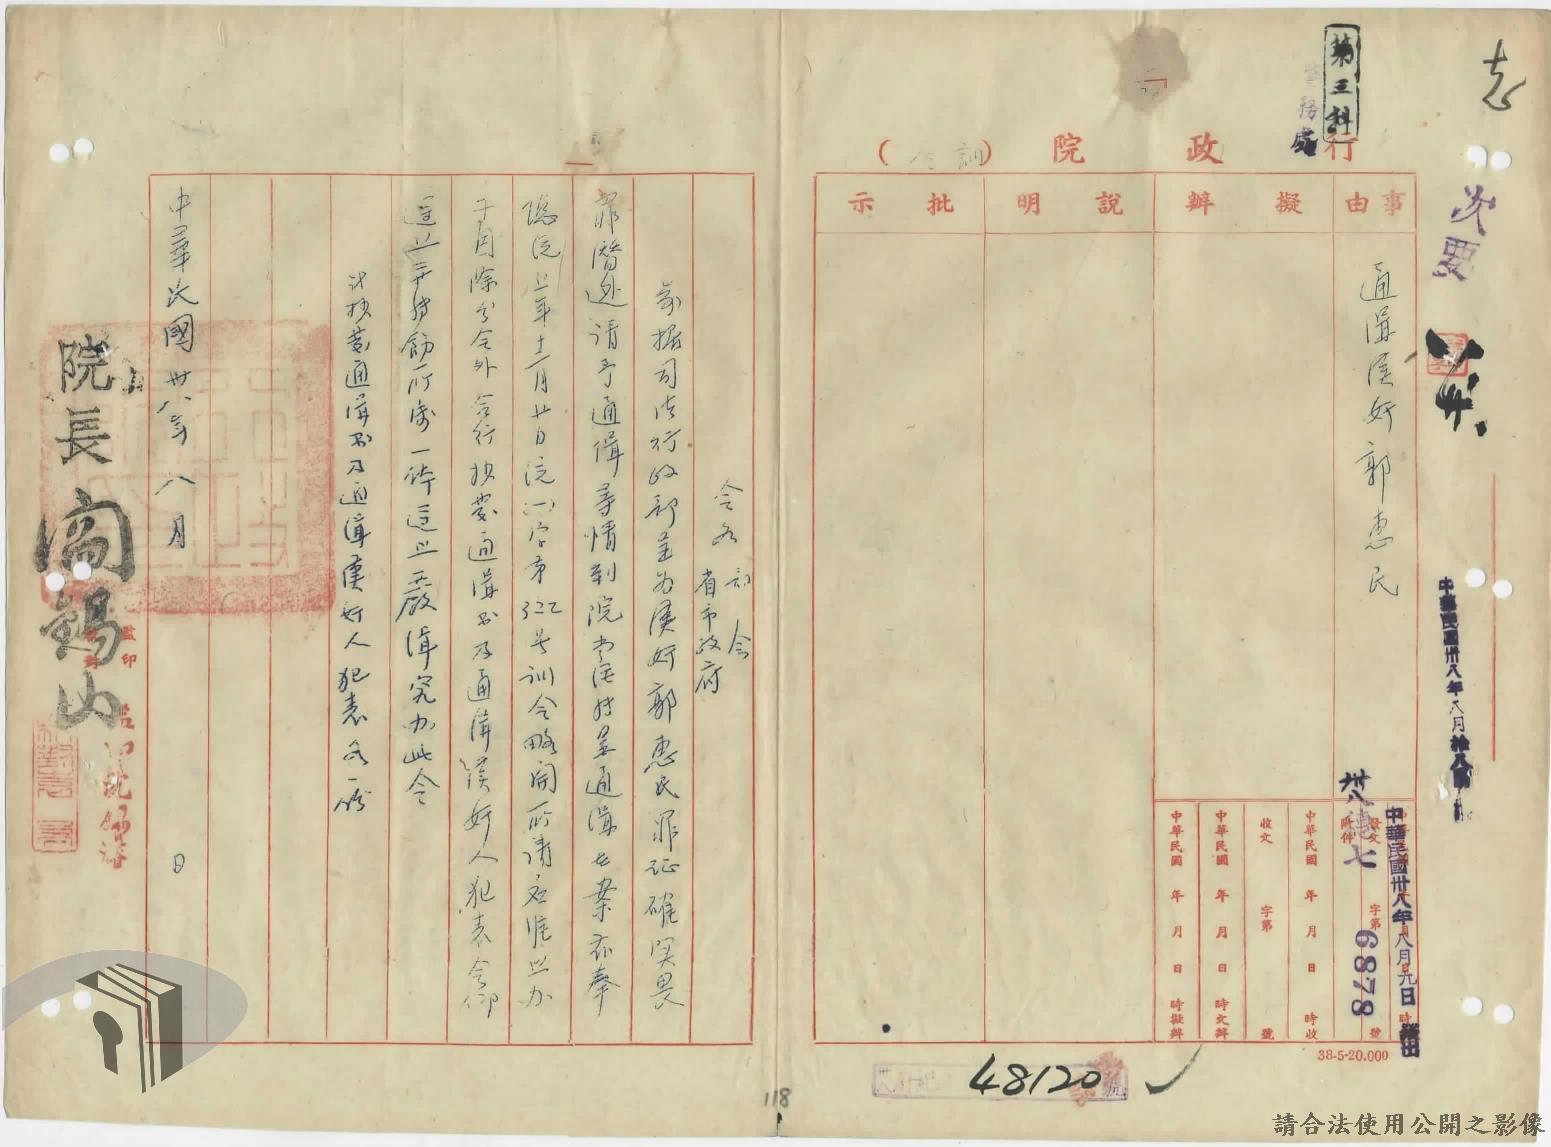 志
第三科
警務處
行政院（訓令）
次要
事由
擬辦
說明
批示
通緝漢奸郭惠民
中華民國卅八年八月拾八
中華民國卅八年八月九日發出
卅八穗七
6878
發文 字第 號
附件
中華民國 年 月 日 時收
收文 字第 號
中華民國 年 月 日 時交辦
中華民國 年 月 日 時擬辦
38-5-20.000
48120
118
令各 部會
省市政府
案據司法行政部呈為漢奸郭惠民罪証確实畏
罪潛逃請予通緝等情到院
總統上年十二月廿日統(一)字第322号訓令略開所請應准照办
等因除分令外合行抄發通緝书及通緝漢奸人犯表令仰
遵照并转飭所屬一体遵照嚴緝究办此令
計抄發通緝书及通緝漢奸人犯表各一份
中華民國卅八年八月 日
院長閻錫山
監印
校對
請合法使用公開之影像